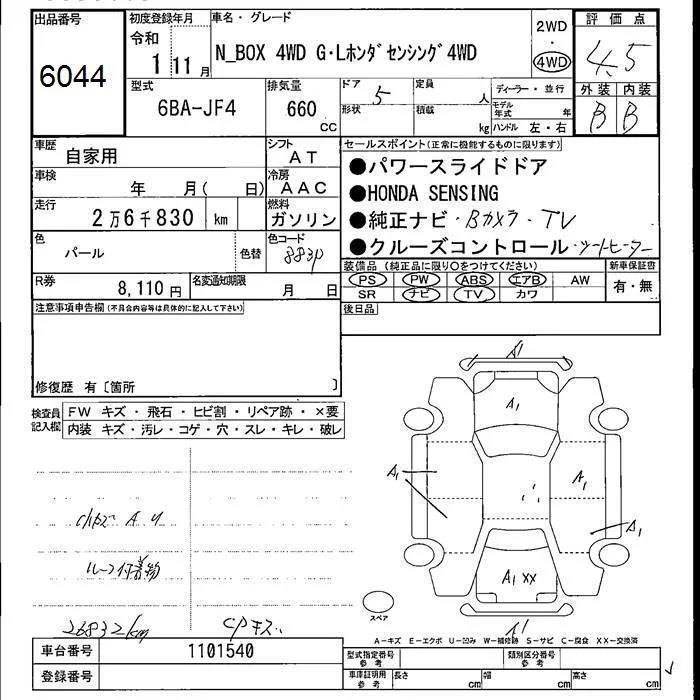 出品番号 初度登録年月 車名・グレード 2WD ・ 4WD 評価点
6044 令和 1 11月 N_BOX 4WD G・Lホンダセンシング4WD 4.5
型式 排気量 ドア 形状 5 定員 人 ディーラー・並行 外装 内装
6BA-JF4 660 cc 積載 kg モデル年式 年 ハンドル 左・右 B B
車歴 自家用 シフト AT セールスポイント(正常に機能するものに限ります)
車検 年 月( 日) 冷房 AAC ●パワースライドドア
走行 2万6千830 km 燃料 ガソリン ●HONDA SENSING
色 パール 色替 色コード 883P ●純正ナビ・Bカメラ・TV
●クルーズコントロール・シートヒーター
R券 8,110円 名変通知期限 月 日 装備品(純正品に限り○をつけてください) 新車保証書
PS PW ABS エアB AW 有・無
SR ナビ TV カワ
注意事項申告欄(不具合内容等は具体的に記入して下さい) 後日品
修復歴 有〔箇所 〕
検査員記入欄 FW キズ・飛石・ヒビ割・リペア跡・×要
内装 キズ・汚レ・コゲ・穴・スレ・キレ・破レ
A1
A1
A1 A1
A1
A1 XX
A1
A U
ルーフ付着物
26832km CPキズ
スペア
A-キズ E-エクボ U-凹み W-補修跡 S-サビ C-腐食 XX-交換済
車台番号 1101540 型式指定番号 参考 類別区分番号 参考
登録番号 車庫証明用 参考 長さ cm 幅 cm 高さ cm